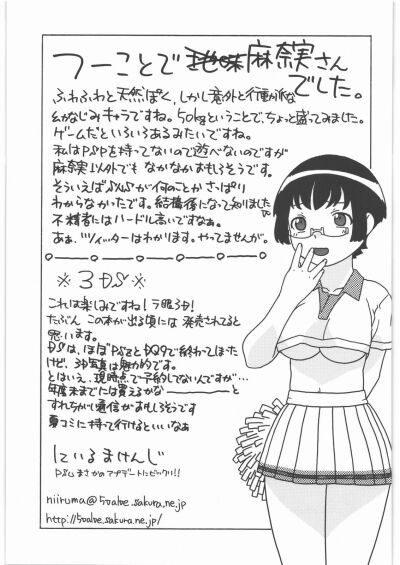 つーことで地味麻奈実さん
でした。
ふわふわと天然ぽく、しかし意外と行動派な
幼なじみキャラですね。50kgということで、ちょっと盛ってみました。
ゲームだといろいろあるみたいですね。
私はPSPを持ってないので遊べないのですが
麻奈実以外でもなかなかおもしろそうです。
そういえばSNSが何のことかさっぱり
わからなかったです。結構後になって知りました
不精者にはハードル高いですなぁ。
あぁ、ツイッターはわかります。やってませんが。
※3DS※
これは楽しみですね!ラ眼3D!
たぶんこの本が出る頃には発売されてると
思います。
DSは、ほぼPS2とDQ9で終わってしまった
けど、3D写真は魅力的です。
とはいえ、現時点で予約してないんですが…
年度末までには買えるかなーーと
すれちがい通信がおもしろそうです
夏コミに持って行けるといいなぁ
にいるまけんじ
まさかのアップデートにビックリ!!
niiruma@50aloe.sakura.ne.jp
http://50aloe.sakura.ne.jp/